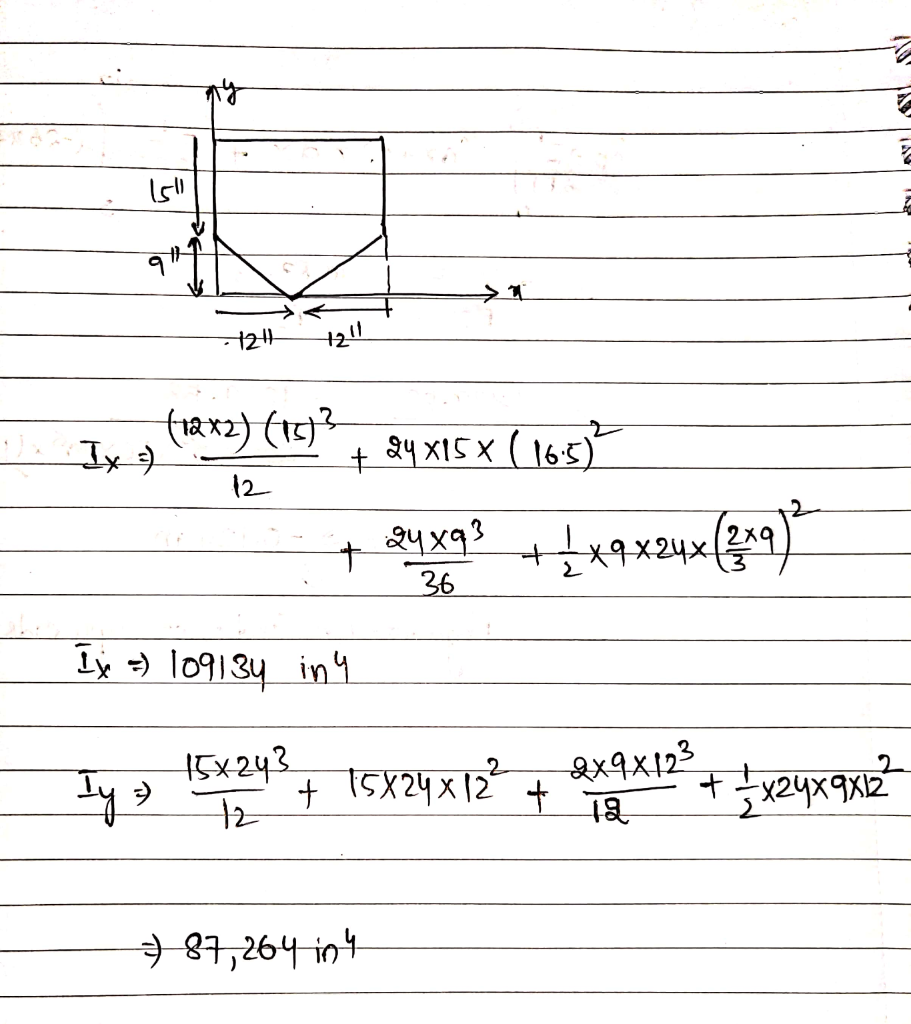 y
15"
9"
x
12" 12"
Ix ⇒ (12x2) (15)³ / 12 + 24 x15 x (16.5)²
+ 24 x9³ / 36 + 1/2 x9 x24x (2x9 / 3)²
Ix ⇒ 109134 in4
Iy ⇒ 15x24³ / 12 + 15x24 x 12² + 2x9x12³ / 12 + 1/2 x24x9x12²
⇒ 87,264 in4